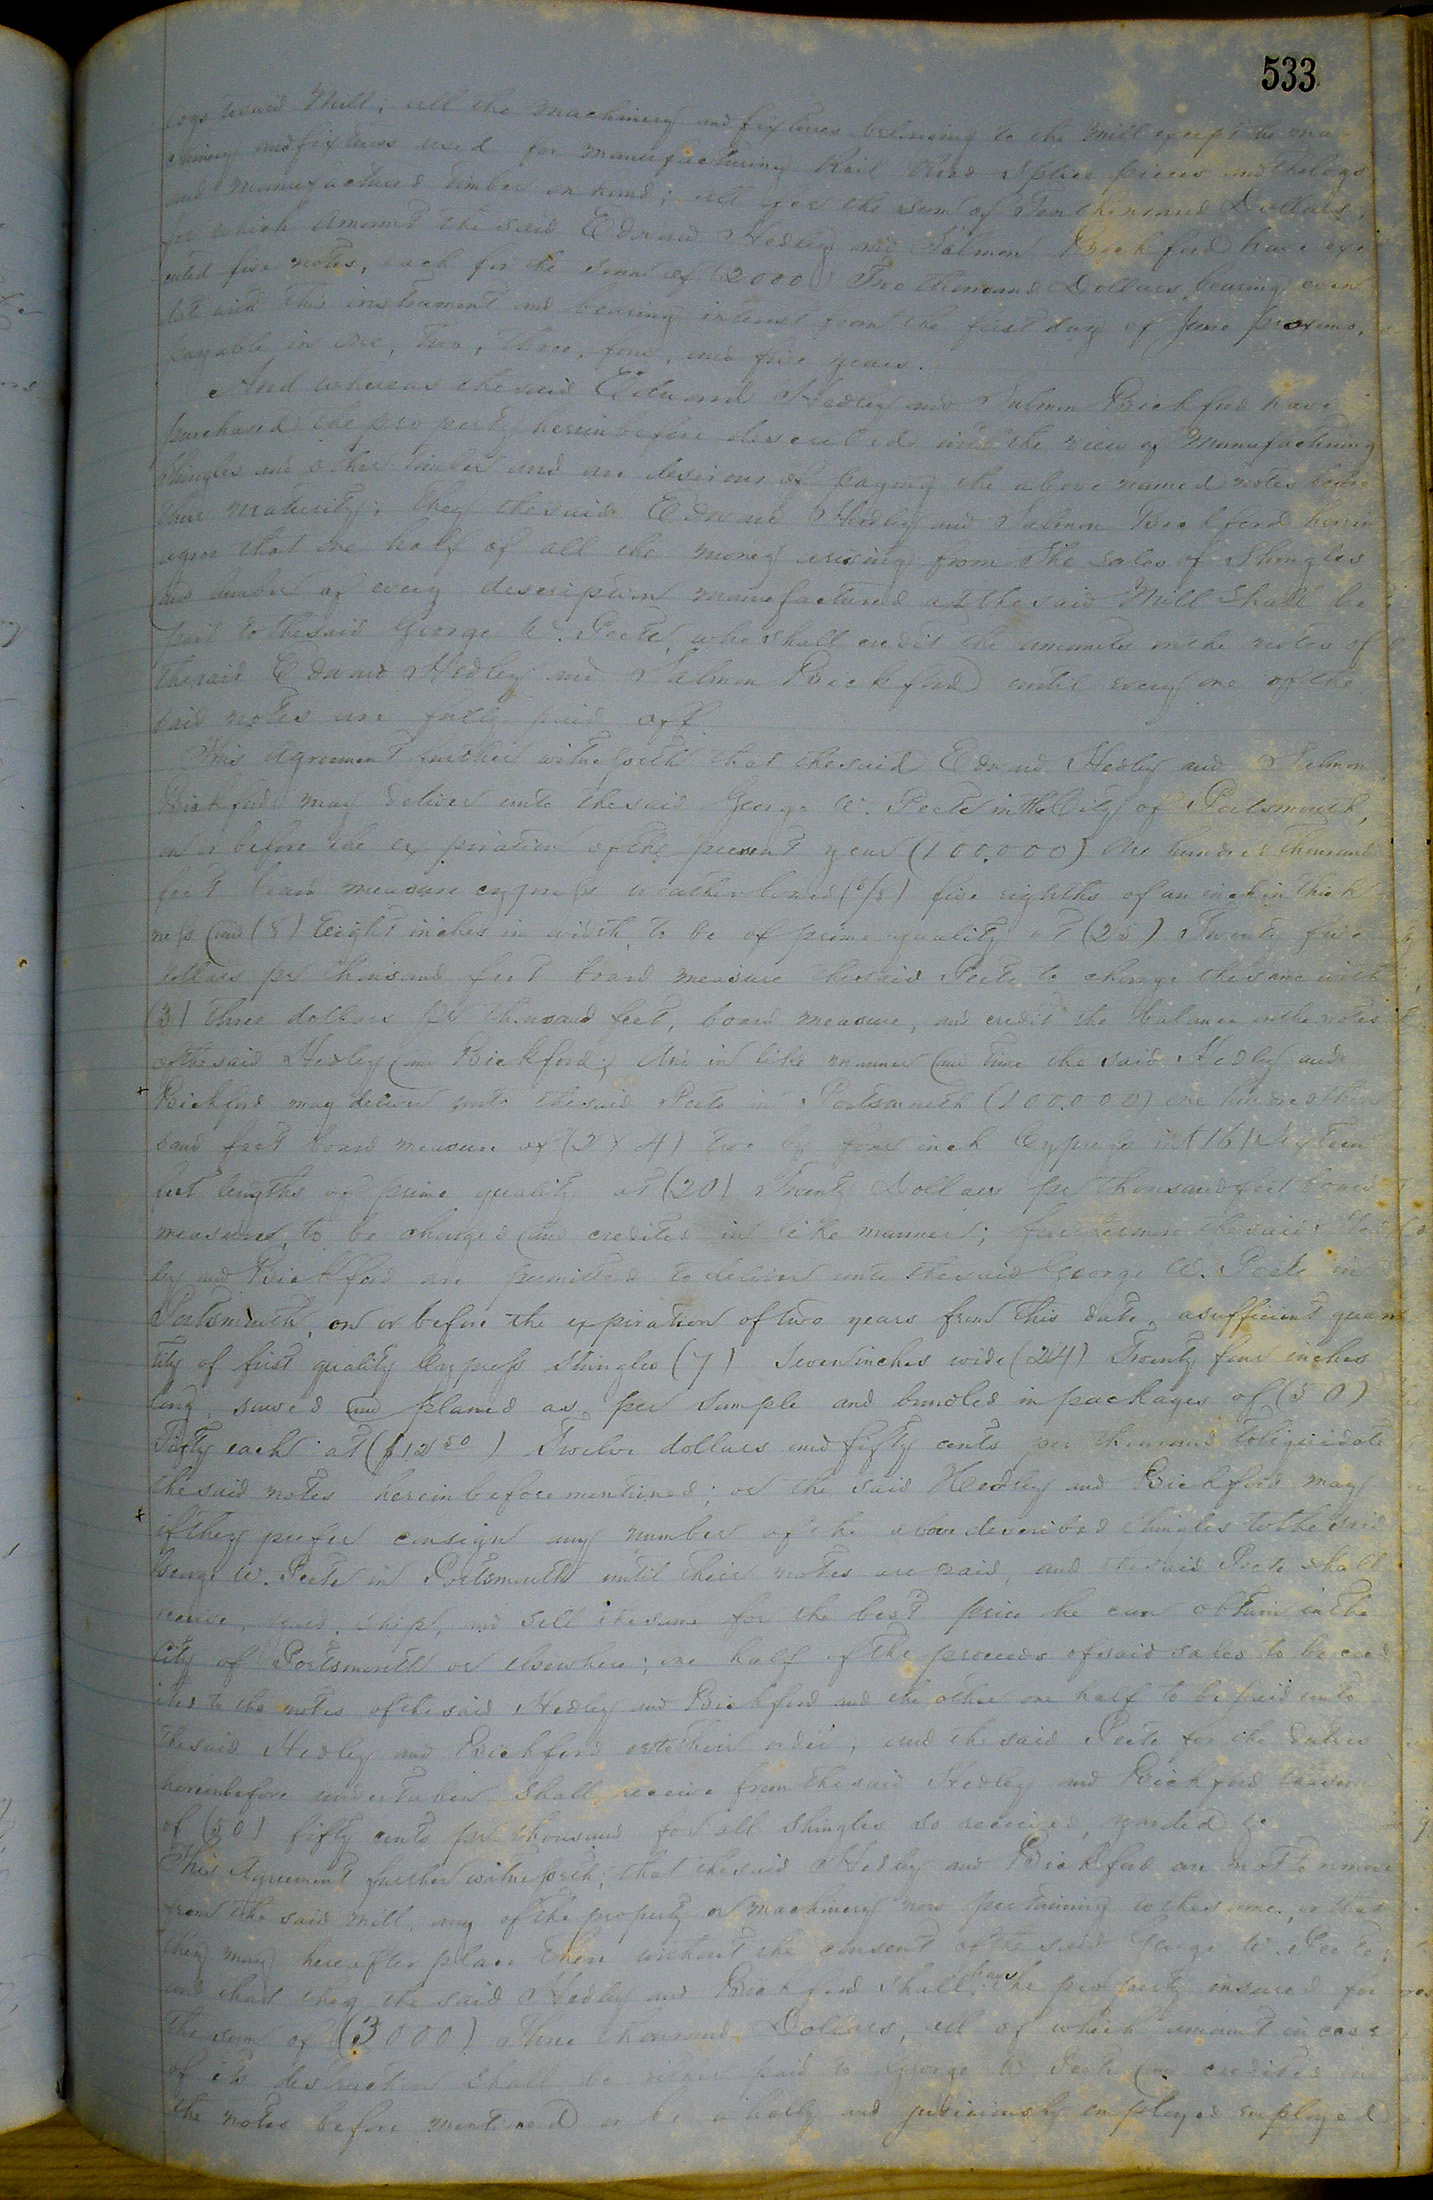 533
logs to said Mill; all the machinery and fixtures belonging to the Mill except the ma-
chinery and fixtures used for manufacturing Rail Road Splice pieces and the logs
and manufactured timber on hand; all for the sum of Ten thousand Dollars;
for which amount the said Edward Hedley and Salmon Bickford have exe
cuted five notes, each for the sum of (2000) Two thousand Dollars, bearing even
date with this instrument and bearing interest from the first day of June proximo,
payable in one, two, three, four, and five years.
And whereas the said Edward Hedley and Salmon Bickford have
purchased the property hereinbefore described with the view of manufacturing
Shingles and other timber and are desirous of paying the above named notes before
their maturity; they the said Edward Hedley and Salmon Bickford herein
agree that one half of all the money arising from the sales of Shingles
and lumber of every description manufactured at the said Mill shall be
paid to the said George W. Peete, who shall credit the amounts on the notes of
the said Edward Hedley and Salmon Bickford until every one of the
said notes are fully paid off
This Agreement further witnesseth that the said Edward Hedley and Salmon
Bickford may deliver unto the said George W. Peete in the City of Portsmouth,
on or before the expiration of the present year (100,000) One hundred thousand
feet board measure cypress weatherboard (5/8) five eighths of an inch in thick
ness and (8) Eight inches in width, to be of prime quality at (25) Twenty five
dollars per thousand feet board measure the said Peete to charge the same with
(3) three dollars per thousand feet, board measure, and credit the balance on the notes
of the said Hedley and Bickford; And in like manner and time the said Hedley and
Bickford may deliver unto the said Peete in Portsmouth (100.000) one hundred thou
sand feet board measure of (2 x 4) two by four inch Cypress in (16) Sixteen
feet lengths of prime quality at (20) Twenty Dollars per thousand feet board
measures, to be charged and credited in like manner; furthermore the said Hed
ley and Bickford are permitted to deliver unto the said George W. Peete in
Portsmouth, on or before the expiration of two years from this date, a sufficient quan
tity of first quality Cypress Shingles (7) Seven inches wide (24) Twenty four inches
long, sawed and planed as per sample and bundled in packages of (50)
Fifty each at ($12 50) Twelve dollars and fifty cents per thousand to liquidate
the said notes hereinbefore mentioned; or the said Hedley and Bickford may
if they prefer consign any number of the above described Shingles to the said
George W. Peete in Portsmouth until their notes are paid, and the said Peete shall
receive, yard, ship, and sell the same for the best price he can obtain in the
City of Portsmouth or elsewhere; one half of the proceeds of said sales to be cred
ited to the notes of the said Hedley and Bickford and the other one half to be paid unto
the said Hedley and Bickford or to their order; and the said Peete for the duties
hereinbefore undertaken shall receive from the said Hedley and Bickford the sum
of (50) fifty cents per thousand for all shingles so received, yarded &c
This Agreement further witnesseth; that the said Hedley and Bickford are not to remove
from the said mill, any of the property or machinery now pertaining to the same, or that
they may hereafter place there without the consent of the said George W. Peete;
and that they the said Hedley and Bickford shall have the property insured for
the sum of (3000) Three thousand Dollars, all of which amount in case
of its destruction shall be either paid to George W. Peete and credited on
the notes before mentioned or be wholly and judiciously employed employed